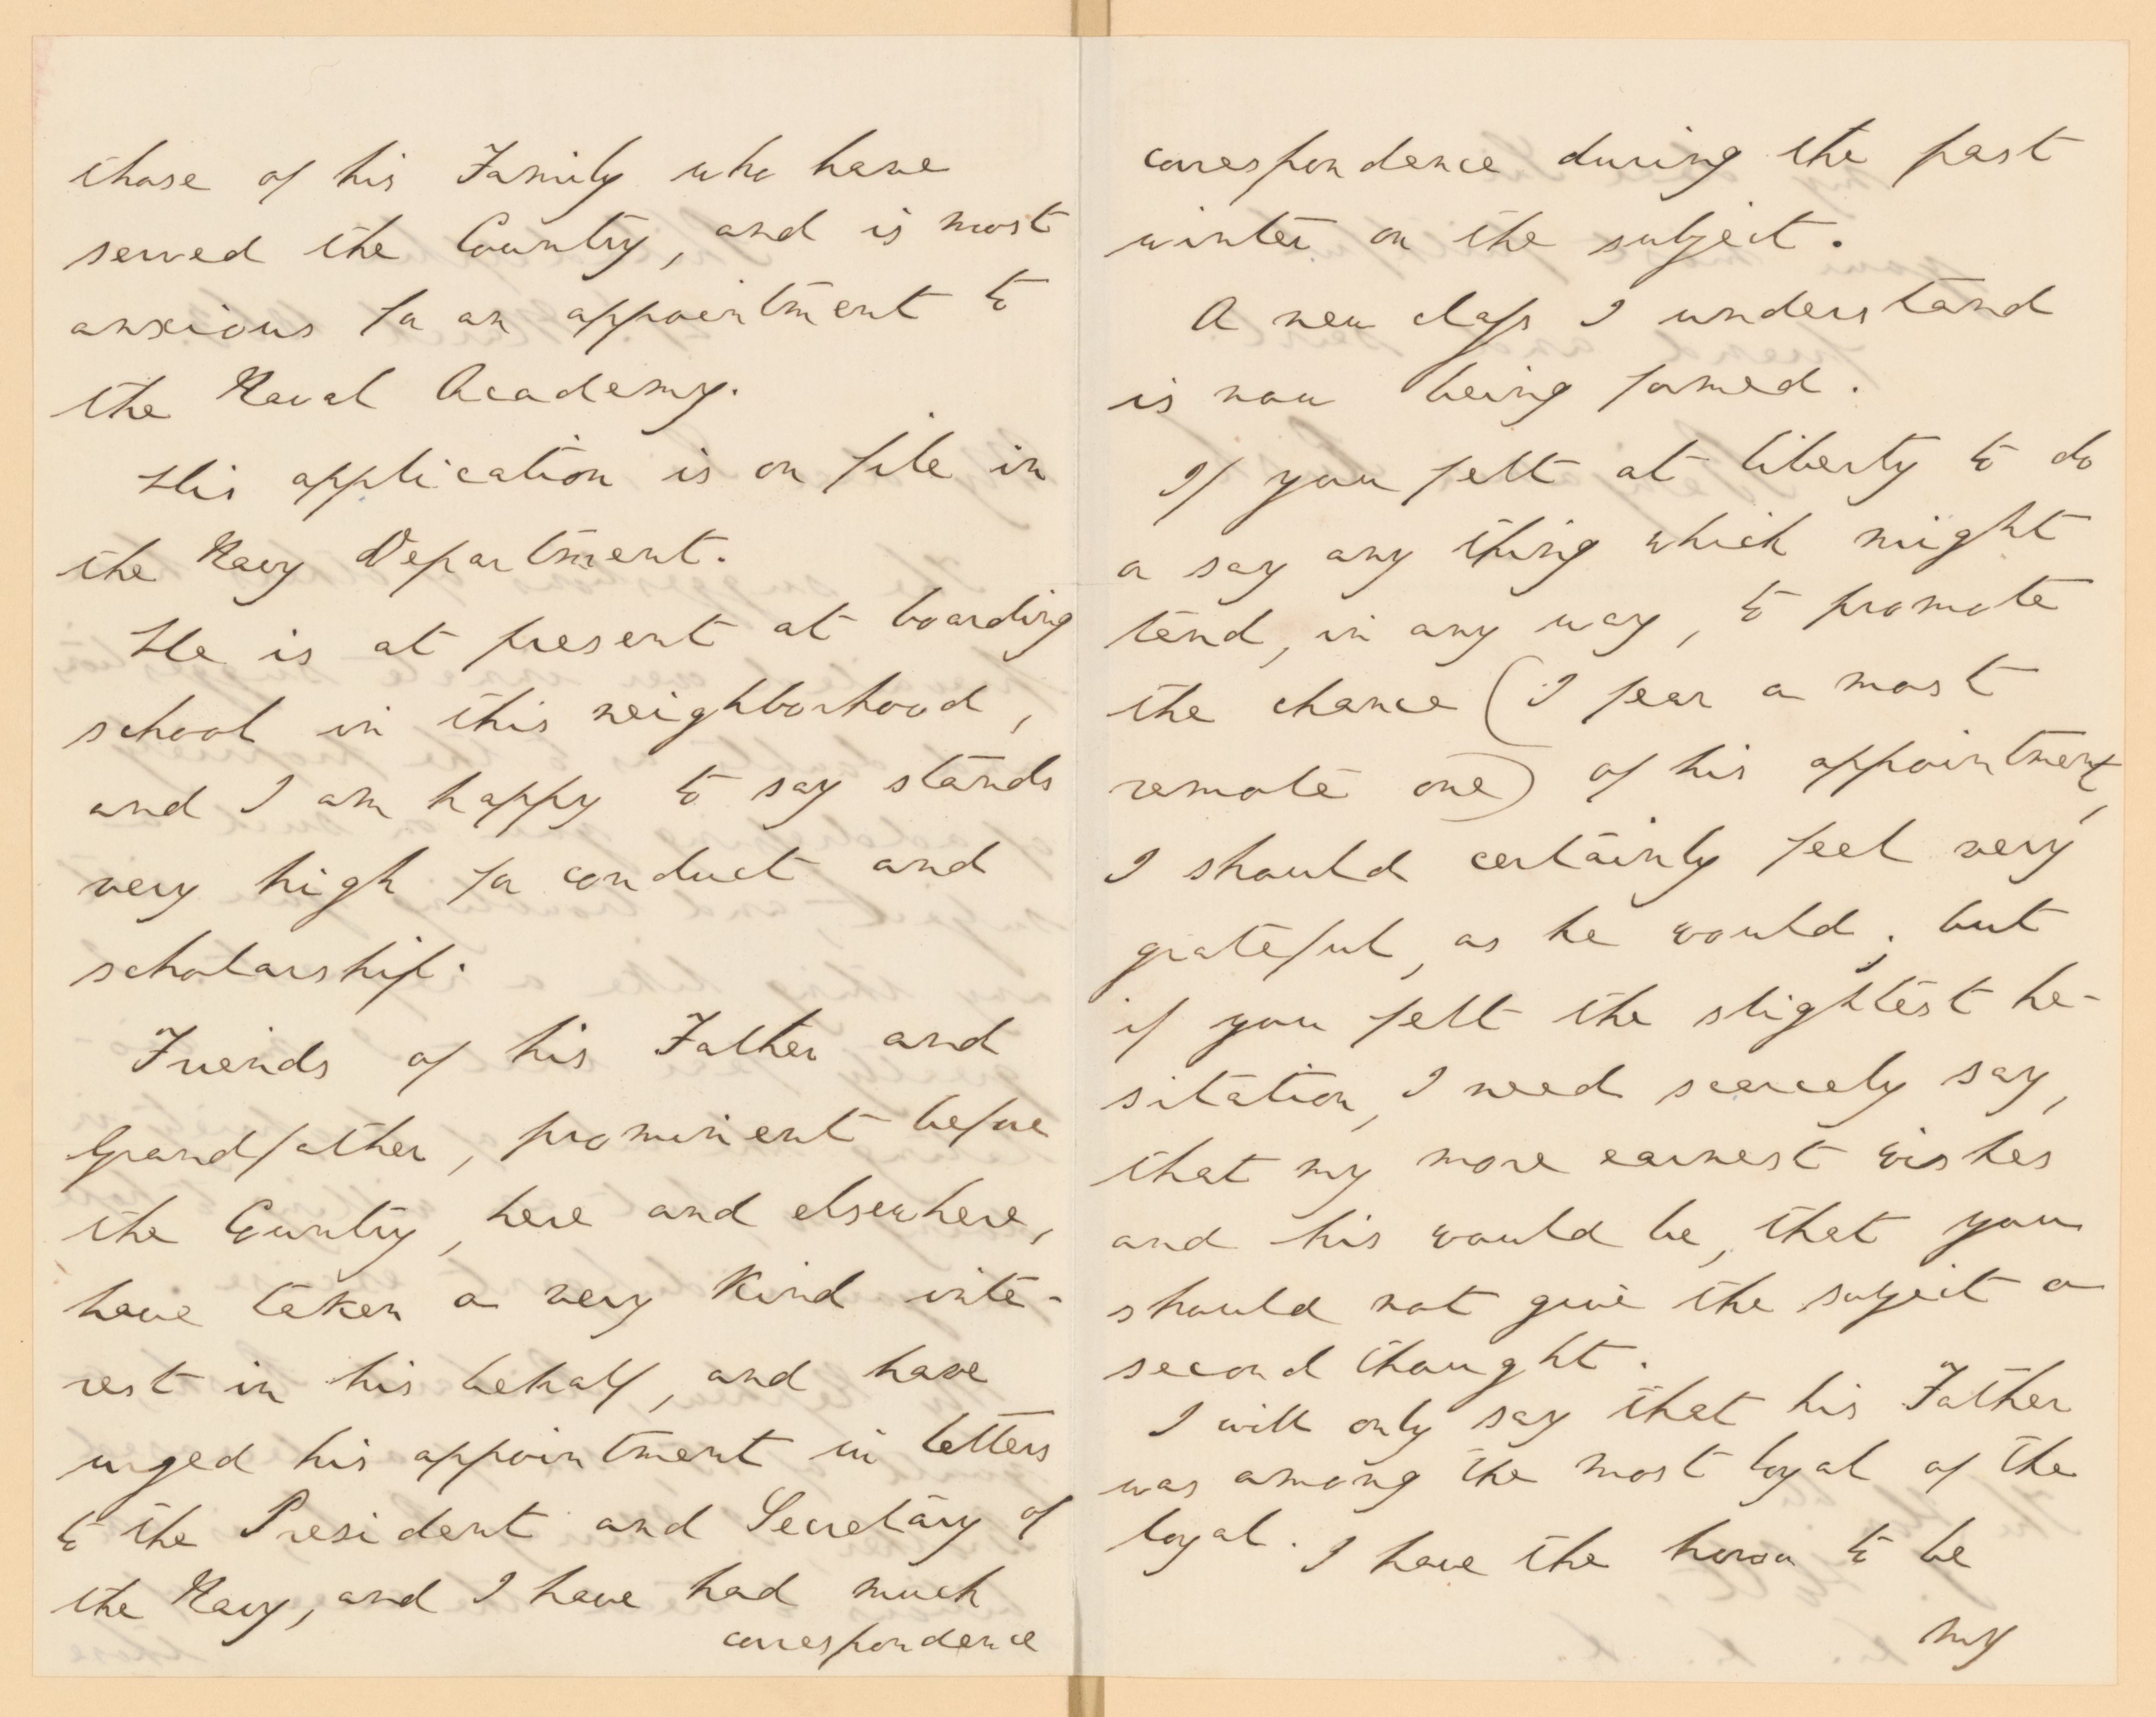 those of his Family who have
served the Country, and is most
anxious for an appointment to
the Naval Academy.
His application is on file in
the Navy Department.
He is at present at boarding
school in this neighborhood,
and I am happy to say stands
very high for conduct and
scholarship.
Friends of his Father and
Grandfather, prominent before
the Country, here and elsewhere,
have taken a very kind inte-
rest in his behalf, and have
urged his appointment in letters
to the President and Secretary of
the Navy, and I have had much
correspondence
correspondence during the past
winter on the subject.
A new class I understand
is now being formed.
If you felt at liberty to do
or say any thing which might
tend, in any way, to promote
the chance (I fear a most
remote one) of his appointment,
I should certainly feel very
grateful, as he would; but
if you felt the slightest he-
sitation, I need scarcely say,
that my more earnest wishes
and his would be, that you
should not give the subject a
second thought.
I will only say that his Father
was among the most loyal of the
loyal. I have the honor to be
my